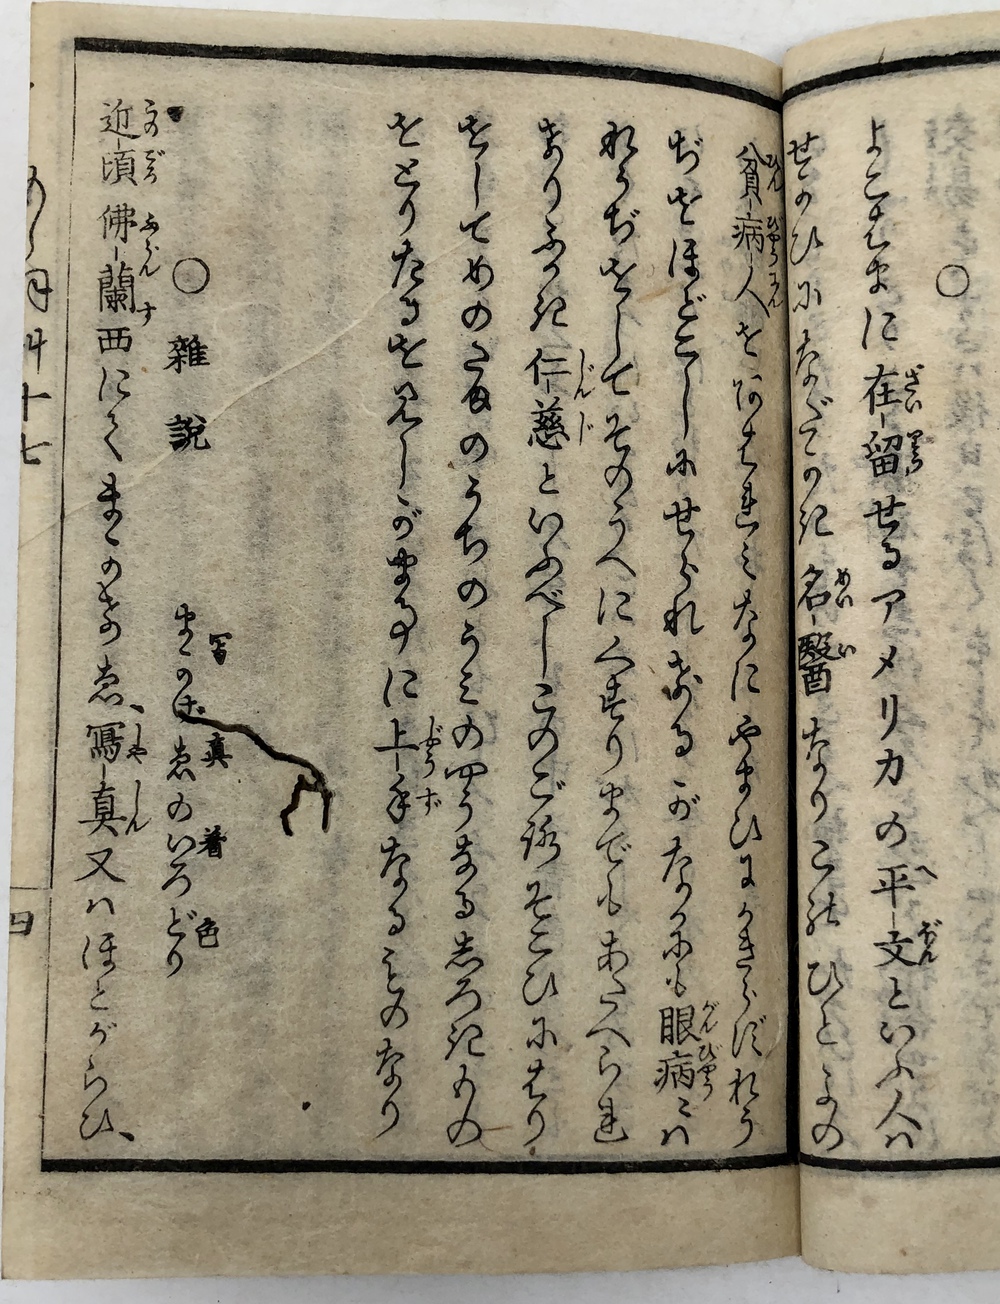 ○
よこはまに在留せるアメリカの平文といふ人ハ
せかひになだかき名醫なりこのひとよの
貧病人をあはれミなにやまひにかきらずれう
ぢをほどこしにせられきたるがなかにも眼病ニハ
れうぢをしてそのうへにくすりまでもあたへられ
まりふかき仁慈といふべしこのごろそこひにはり
をしてめのたまのうちのうミのやうなるしろきもの
をとりたるを見しがまことに上手なることのなり
○雜說
寫真着色
まことゑのいろどり
近頃佛蘭西にてまことのゑ、寫真又ハほとがらひ、
四十七
四